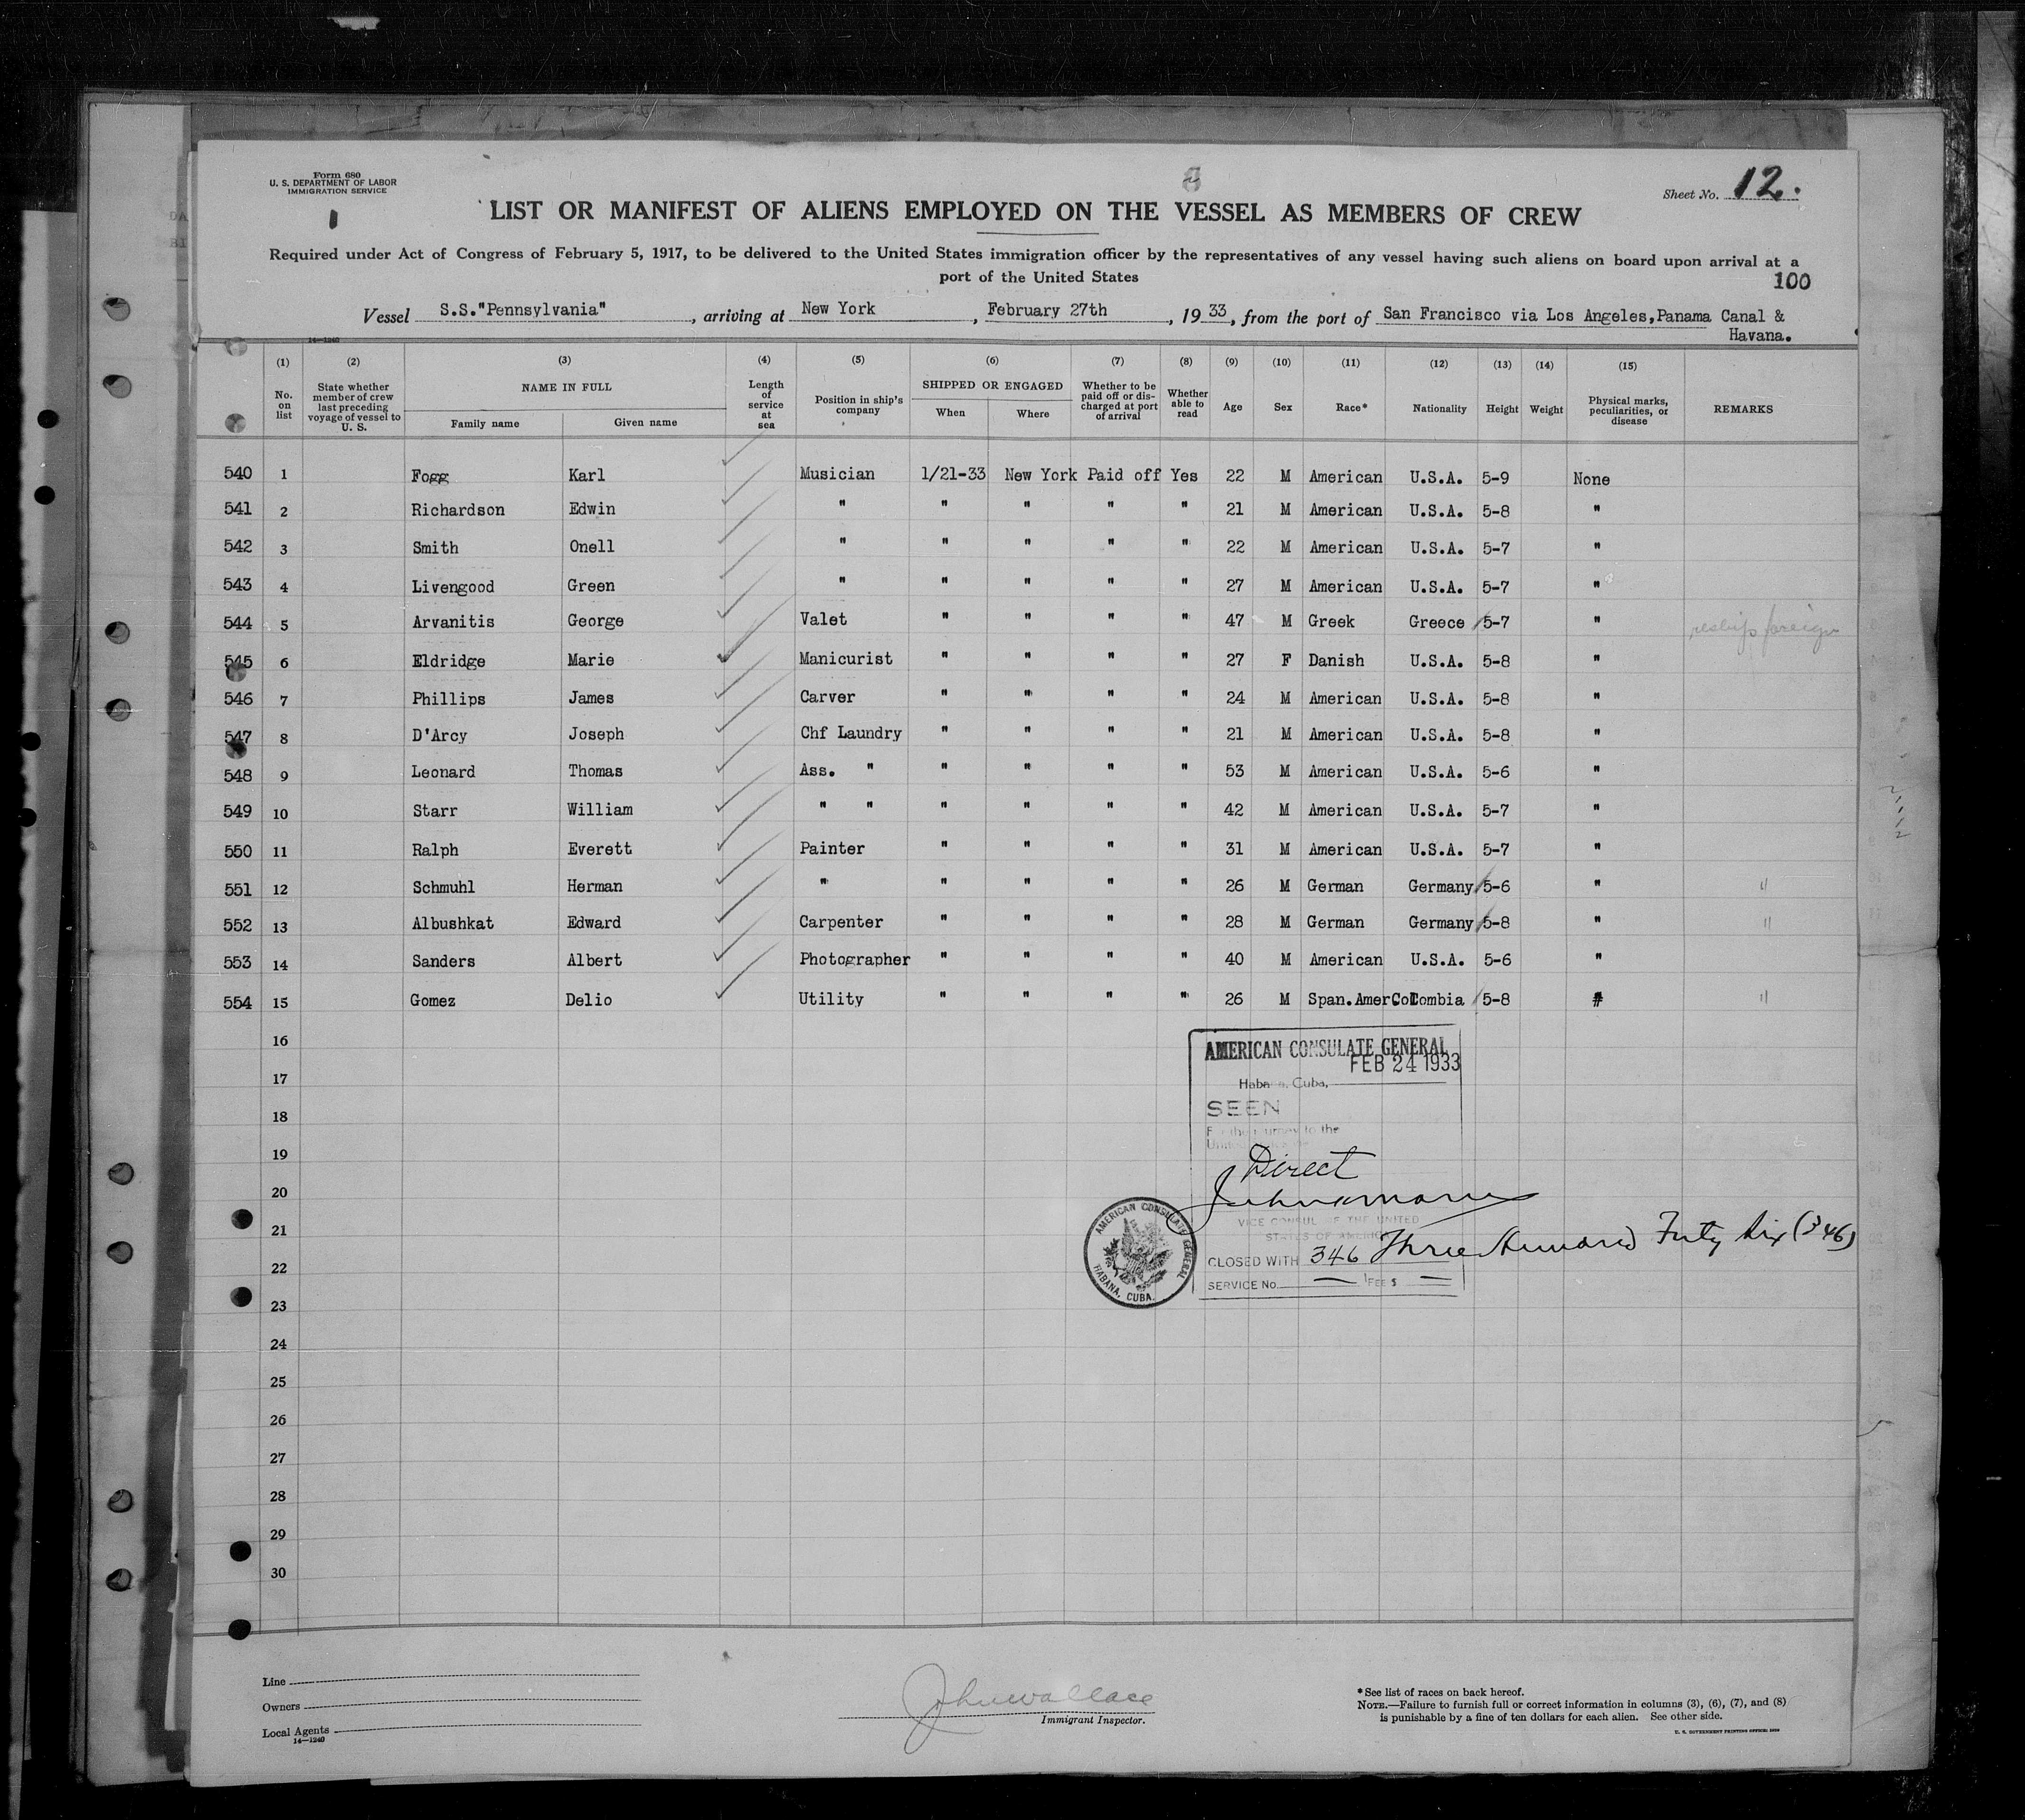 Form 680
U. S. DEPARTMENT OF LABOR
IMMIGRATION SERVICE
1
Sheet No. 12.
LIST OR MANIFEST OF ALIENS EMPLOYED ON THE VESSEL AS MEMBERS OF CREW
Required under Act of Congress of February 5, 1917, to be delivered to the United States immigration officer by the representatives of any vessel having such aliens on board upon arrival at a
port of the United States
100
Vessel S.S."Pennsylvania", arriving at New York, February 27th, 1933, from the port of San Francisco via Los Angeles,Panama Canal &
Havana.
14—1240
(1) (2) (3) (4) (5) (6) (7) (8) (9) (10) (11) (12) (13) (14) (15)
No. on list State whether member of crew last preceding voyage of vessel to U. S. NAME IN FULL Family name Given name Length of service at sea Position in ship's company SHIPPED OR ENGAGED When Where Whether to be paid off or discharged at port of arrival Whether able to read Age Sex Race* Nationality Height Weight Physical marks, peculiarities, or disease REMARKS
540 1 Fogg Karl Musician 1/21-33 New York Paid off Yes 22 M American U.S.A. 5-9 None
541 2 Richardson Edwin " " " " " 21 M American U.S.A. 5-8 "
542 3 Smith Onell " " " " " 22 M American U.S.A. 5-7 "
543 4 Livengood Green " " " " " 27 M American U.S.A. 5-7 "
544 5 Arvanitis George Valet " " " " 47 M Greek Greece 5-7 " reship foreign
545 6 Eldridge Marie Manicurist " " " " 27 F Danish U.S.A. 5-8 "
546 7 Phillips James Carver " " " " 24 M American U.S.A. 5-8 "
547 8 D'Arcy Joseph Chf Laundry " " " " 21 M American U.S.A. 5-8 "
548 9 Leonard Thomas Ass. " " " " " 53 M American U.S.A. 5-6 "
549 10 Starr William " " " " " " 42 M American U.S.A. 5-7 "
550 11 Ralph Everett Painter " " " " 31 M American U.S.A. 5-7 "
551 12 Schmuhl Herman " " " " " 26 M German Germany 5-6 " "
552 13 Albushkat Edward Carpenter " " " " 28 M German Germany 5-8 " "
553 14 Sanders Albert Photographer " " " " 40 M American U.S.A. 5-6 "
554 15 Gomez Delio Utility " " " " 26 M Span.Amer Colombia 5-8 " "
16
17
18
19
20
21
22
23
24
25
26
27
28
29
30
AMERICAN CONSULATE GENERAL
FEB 24 1933
Habana, Cuba,
SEEN
For the journey to the
Direct
VICE CONSUL OF THE UNITED
STATES OF AMERICA
CLOSED WITH 346 Three Hundred Forty Six (346)
SERVICE No. — FEE $ —
AMERICAN CONSULATE GENERAL
HABANA, CUBA.
Line
Owners
Local Agents
14—1240
John Wallace
Immigrant Inspector.
*See list of races on back hereof.
NOTE.—Failure to furnish full or correct information in columns (3), (6), (7), and (8)
is punishable by a fine of ten dollars for each alien. See other side.